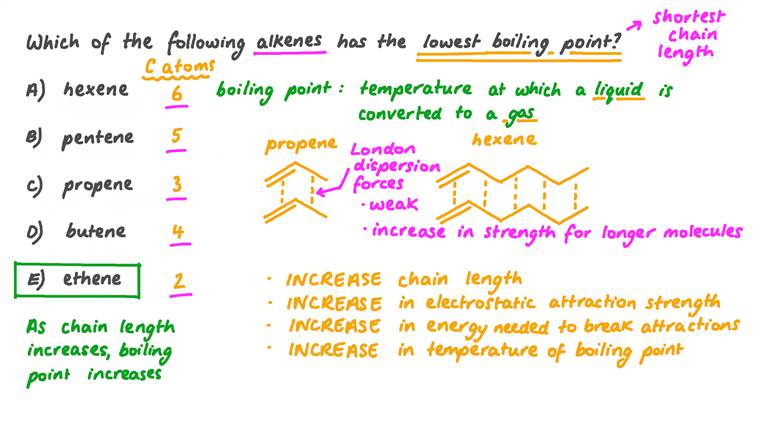 Which of the following alkenes has the lowest boiling point?
shortest
chain
length
C atoms
A) hexene 6
B) pentene 5
C) propene 3
D) butene 4
E) ethene 2
boiling point : temperature at which a liquid is
converted to a gas
propene
London
dispersion
forces
· weak
· increase in strength for longer molecules
hexene
As chain length
increases, boiling
point increases
· INCREASE chain length
· INCREASE in electrostatic attraction strength
· INCREASE in energy needed to break attractions
· INCREASE in temperature of boiling point